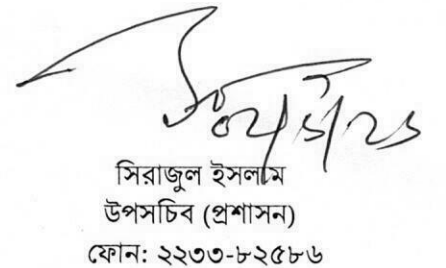 সিরাজুল ইসলাম
উপসচিব (প্রশাসন)
ফোন: ২২৩৩-৮২৫৮৬